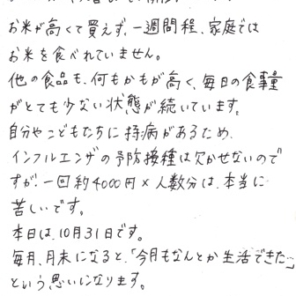 お米が高くて買えず、一週間程、家庭では
お米を食べれていません。
他の食品も、何もかもが高く、毎日の食事量
がとても少ない状態が続いています。
自分やこどもたちに持病があるため、
インフルエンザの予防接種は欠かせないので
すが、一回約4000円×人数分は、本当に
苦しいです。
本日は、10月31日です。
毎月、月末になると、「今月もなんとか生活できた」
という思いになります。